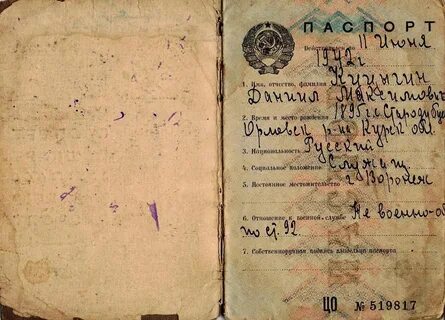 ПАСПОРТ
Действителен 11 Июня
1942 г
1. Имя, отчество, фамилия
Даниил Максимович
2. Время и место рождения 1895 г
Орловск р на Курск обл
3. Национальность Русский
4. Социальное положение Служащ.
5. Постоянное местожительство г Воронеж
6. Отношение к военной службе Не военно-об
по ст. 92.
7. Собственноручная подпись владельца паспорта
ЦО № 519817